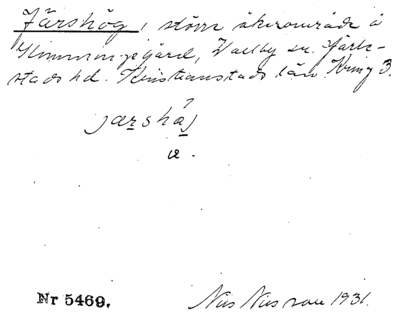 Järshög, större åkerområde å
Ylinnungegård, Walby sn. Järr-
stads hd. Kristianstads län. Kring 3.
jærshåj
v.
Nr 5469.
Nils Nilsson 1931.